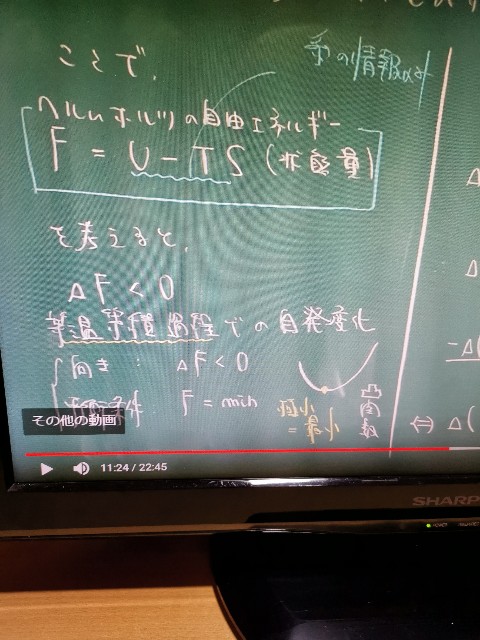 ここで,
系の情報のみ
ヘルムホルツの自由エネルギー
F = U - TS (状態量)
を考えると,
ΔF < 0
等温等積過程での自発変化
向き : ΔF < 0
平衡条件 F = min
極小
= 最小
凸関数
⇔ Δ(
-Δ(
その他の動画
11:24 / 22:45
SHARP